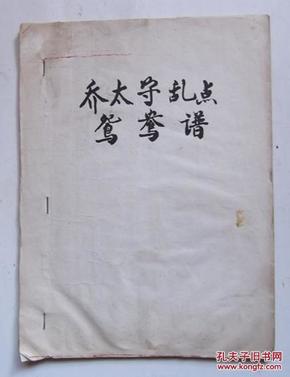 乔太守乱点
鸳鸯谱
孔夫子旧书网
kongfz.com